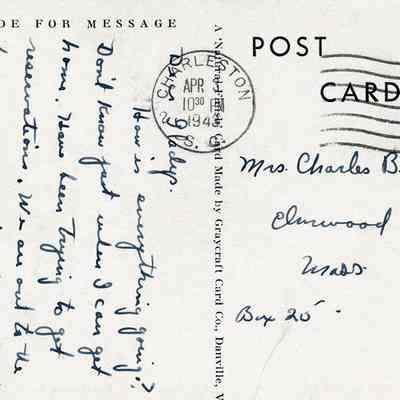 DE FOR MESSAGE
Dear Gladys.
How is everything going?
Don't know just when I can get
home. Have been trying to get
reservations. We are out to the
A "Natural Finish" Card Made by Graycraft Card Co., Danville, V
CHARLESTON
APR
10
1948
S. C.
POST
CARD
Mrs. Charles B.
Elmwood
Mass.
Box 25